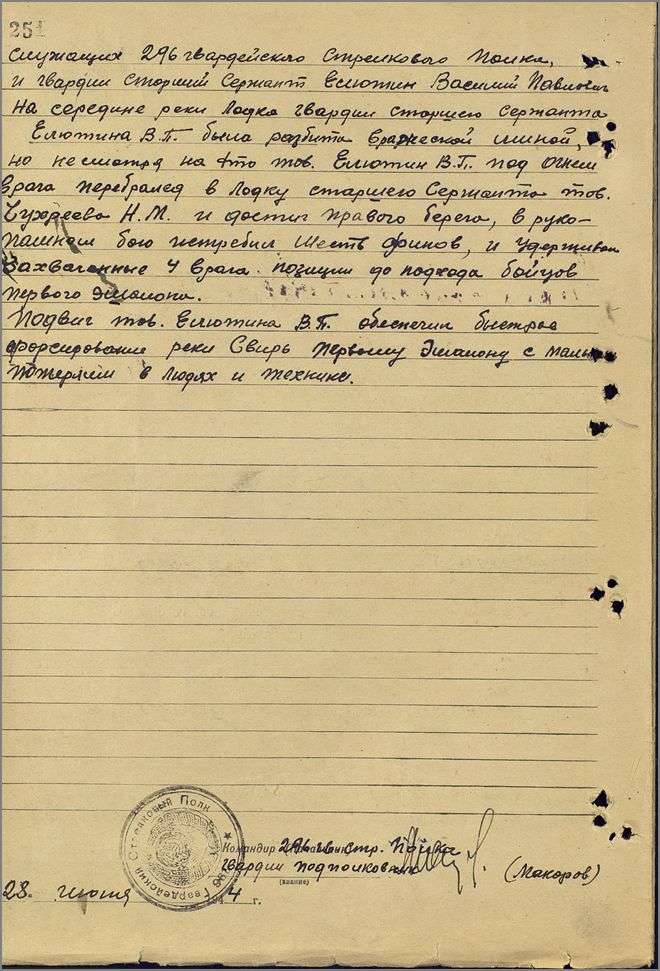 251
служащих 296 гвардейского Стрелкового Полка,
и гвардии Старший Сержант Елютин Василий Павлович
на середине реки Лодка гвардии старшего Сержанта
Елютина В.П. была разбита вражеской миной,
но несмотря на это тов. Елютин В.П. под огнем
врага перебрался в Лодку старшего Сержанта тов.
Бухреева Н.М. и достиг правого берега, в руко-
пашном бою истребил Шесть финов, и удерживал
Захваченные у врага позиции до подхода бойцов
Первого эшелона.
Подвиг тов. Елютина В.П. обеспечил быстрое
форсирование реки Свирь Первому Эшелону с малыми
потерями в людях и технике.
Командир 296 гв. Стр. Полка
Гвардии Подполковник (Макаров)
(звание)
Гвардейский Стрелковый Полк
23. июня 4 г.